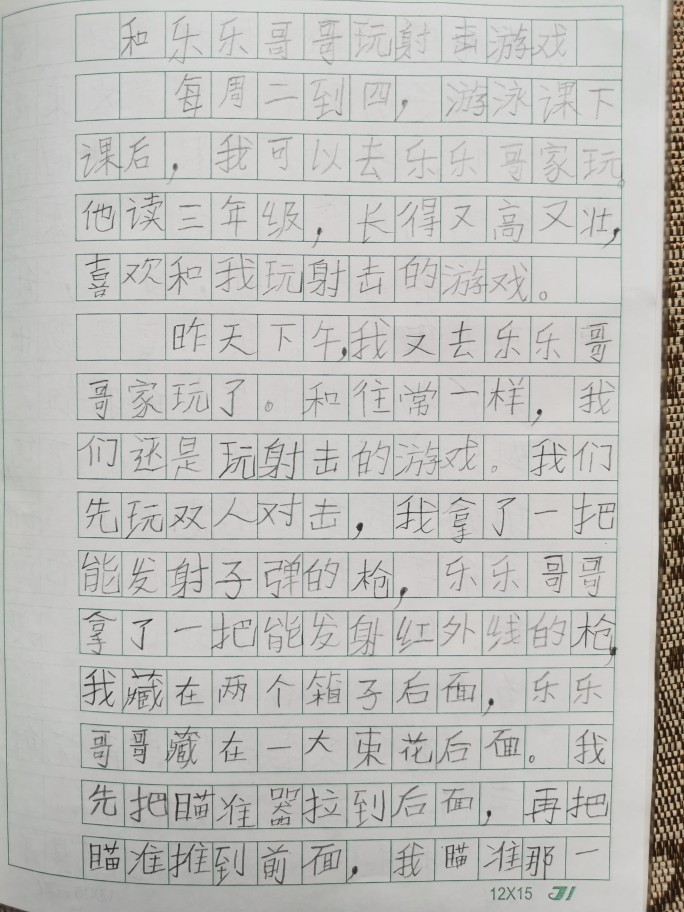 和乐乐哥哥玩射击游戏
每周二到四，游泳课下
课后，我可以去乐乐哥家玩。
他读三年级，长得又高又壮，
喜欢和我玩射击的游戏。
昨天下午，我又去乐乐哥
哥家玩了。和往常一样，我
们还是玩射击的游戏。我们
先玩双人对击，我拿了一把
能发射子弹的枪，乐乐哥哥
拿了一把能发射红外线的枪，
我藏在两个箱子后面，乐乐
哥哥藏在一大束花后面。我
先把瞄准器拉到后面，再把
瞄准推到前面，我瞄准那一
12X15